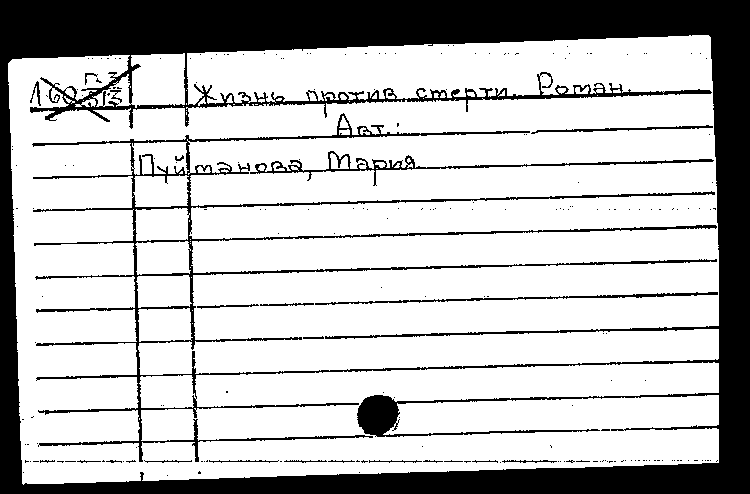 Жизнь против смерти. Роман.
Авт.:
Пуйманова, Мария